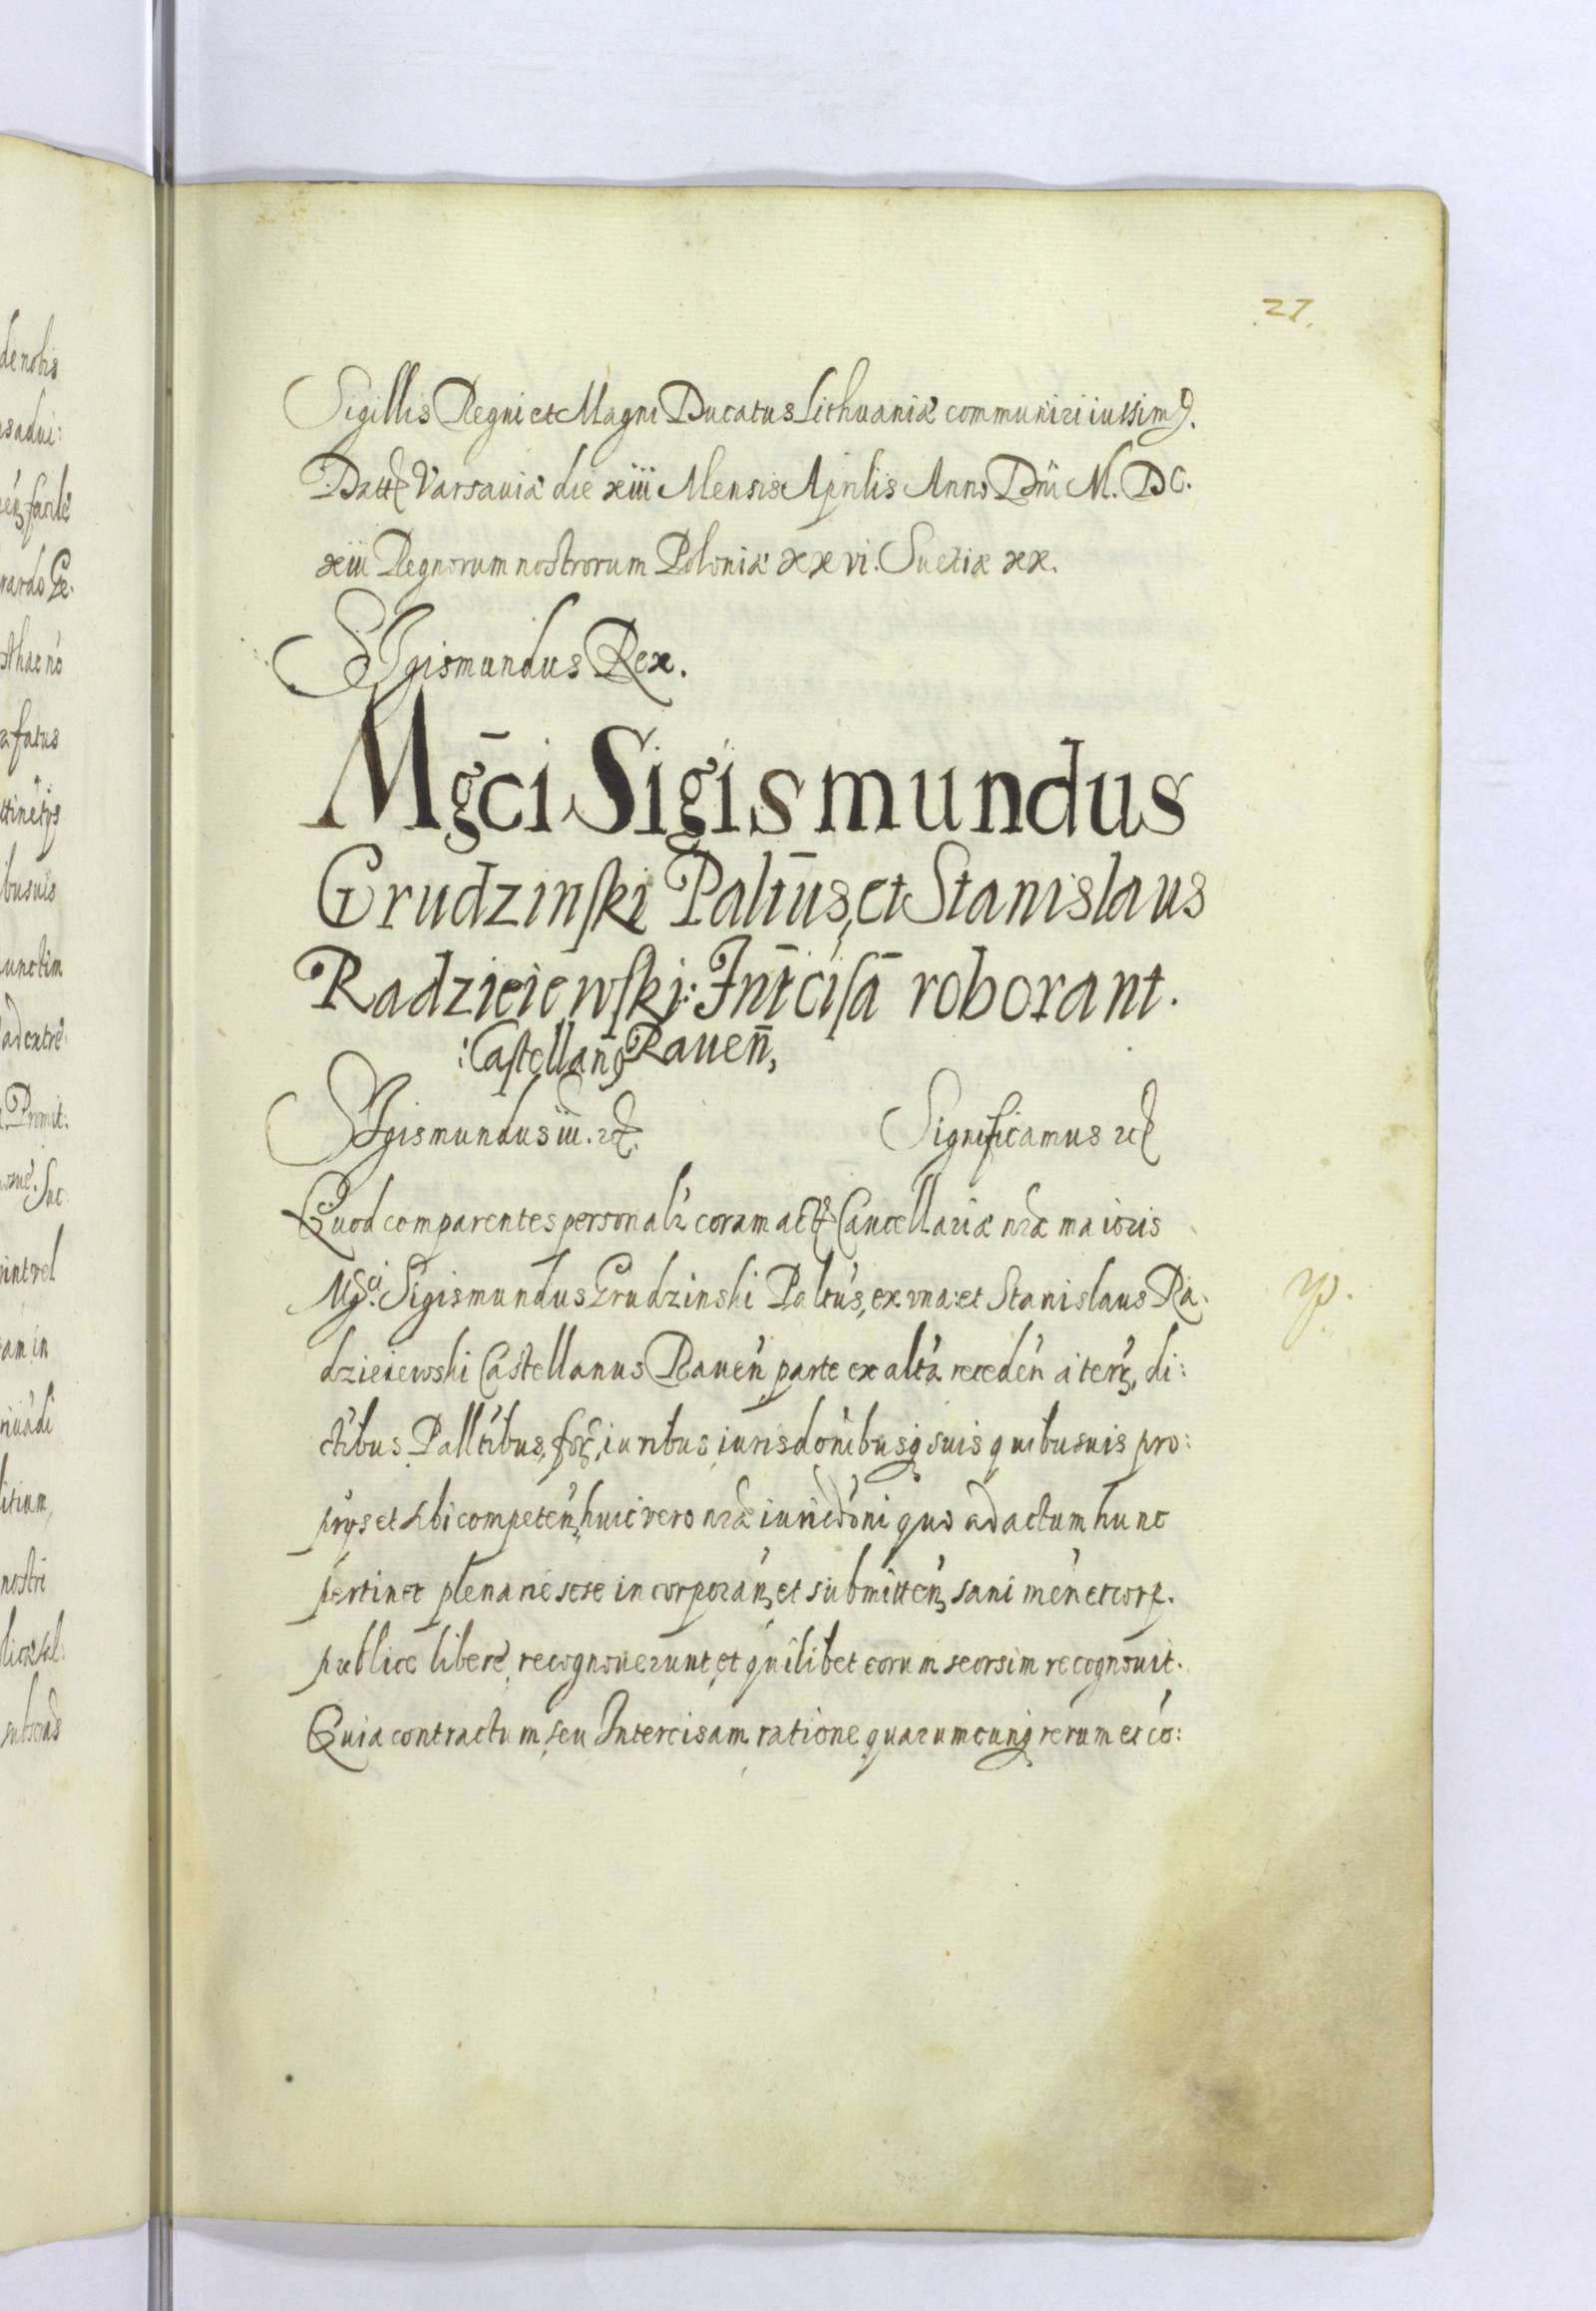 27.
Sigillis Regni et Magni Ducatus Lithuaniæ communiri iussimꝰ.
Datt Varsaviæ die xiii Mensis Aprilis Anno Dni M. DC.
xiii Regnorum nostrorum Poloniæ xxvi. Suetiæ xx.
Sigismundus Rex.
Mgci Sigismundus
Grudzinski Paltus, et Stanislaus
Radzieiewski: Intcisa roborant.
:Castellanꝰ Raven,
Sigismundus iii. etc. Significamus etc
Quod comparentes personalr coram act Cancellariæ nræ maioris
Mgci. Sigismundus Grudzinski Paltus, ex una: et Stanislaus Ra:
dzieiewski Castellanus Raven parte ex altra receden a terris, di:
ctibus Palltibus, iuribus iurisdonibusq suis quibusuis pro:
prys et sibi competen, huic vero nræ iurisdoni quo ad actum hunc
pertinet plenarie sese incorporan, et submitten, sani men et corp.
publice libere recognoverunt, et quilibet eorum seorsim recognouit.
Quia contractum seu Intercisam ratione quarumcunq rerum et co:
denobis
fatus
busuis
unctim
Promit:
int vel
am in
itium,
nostri